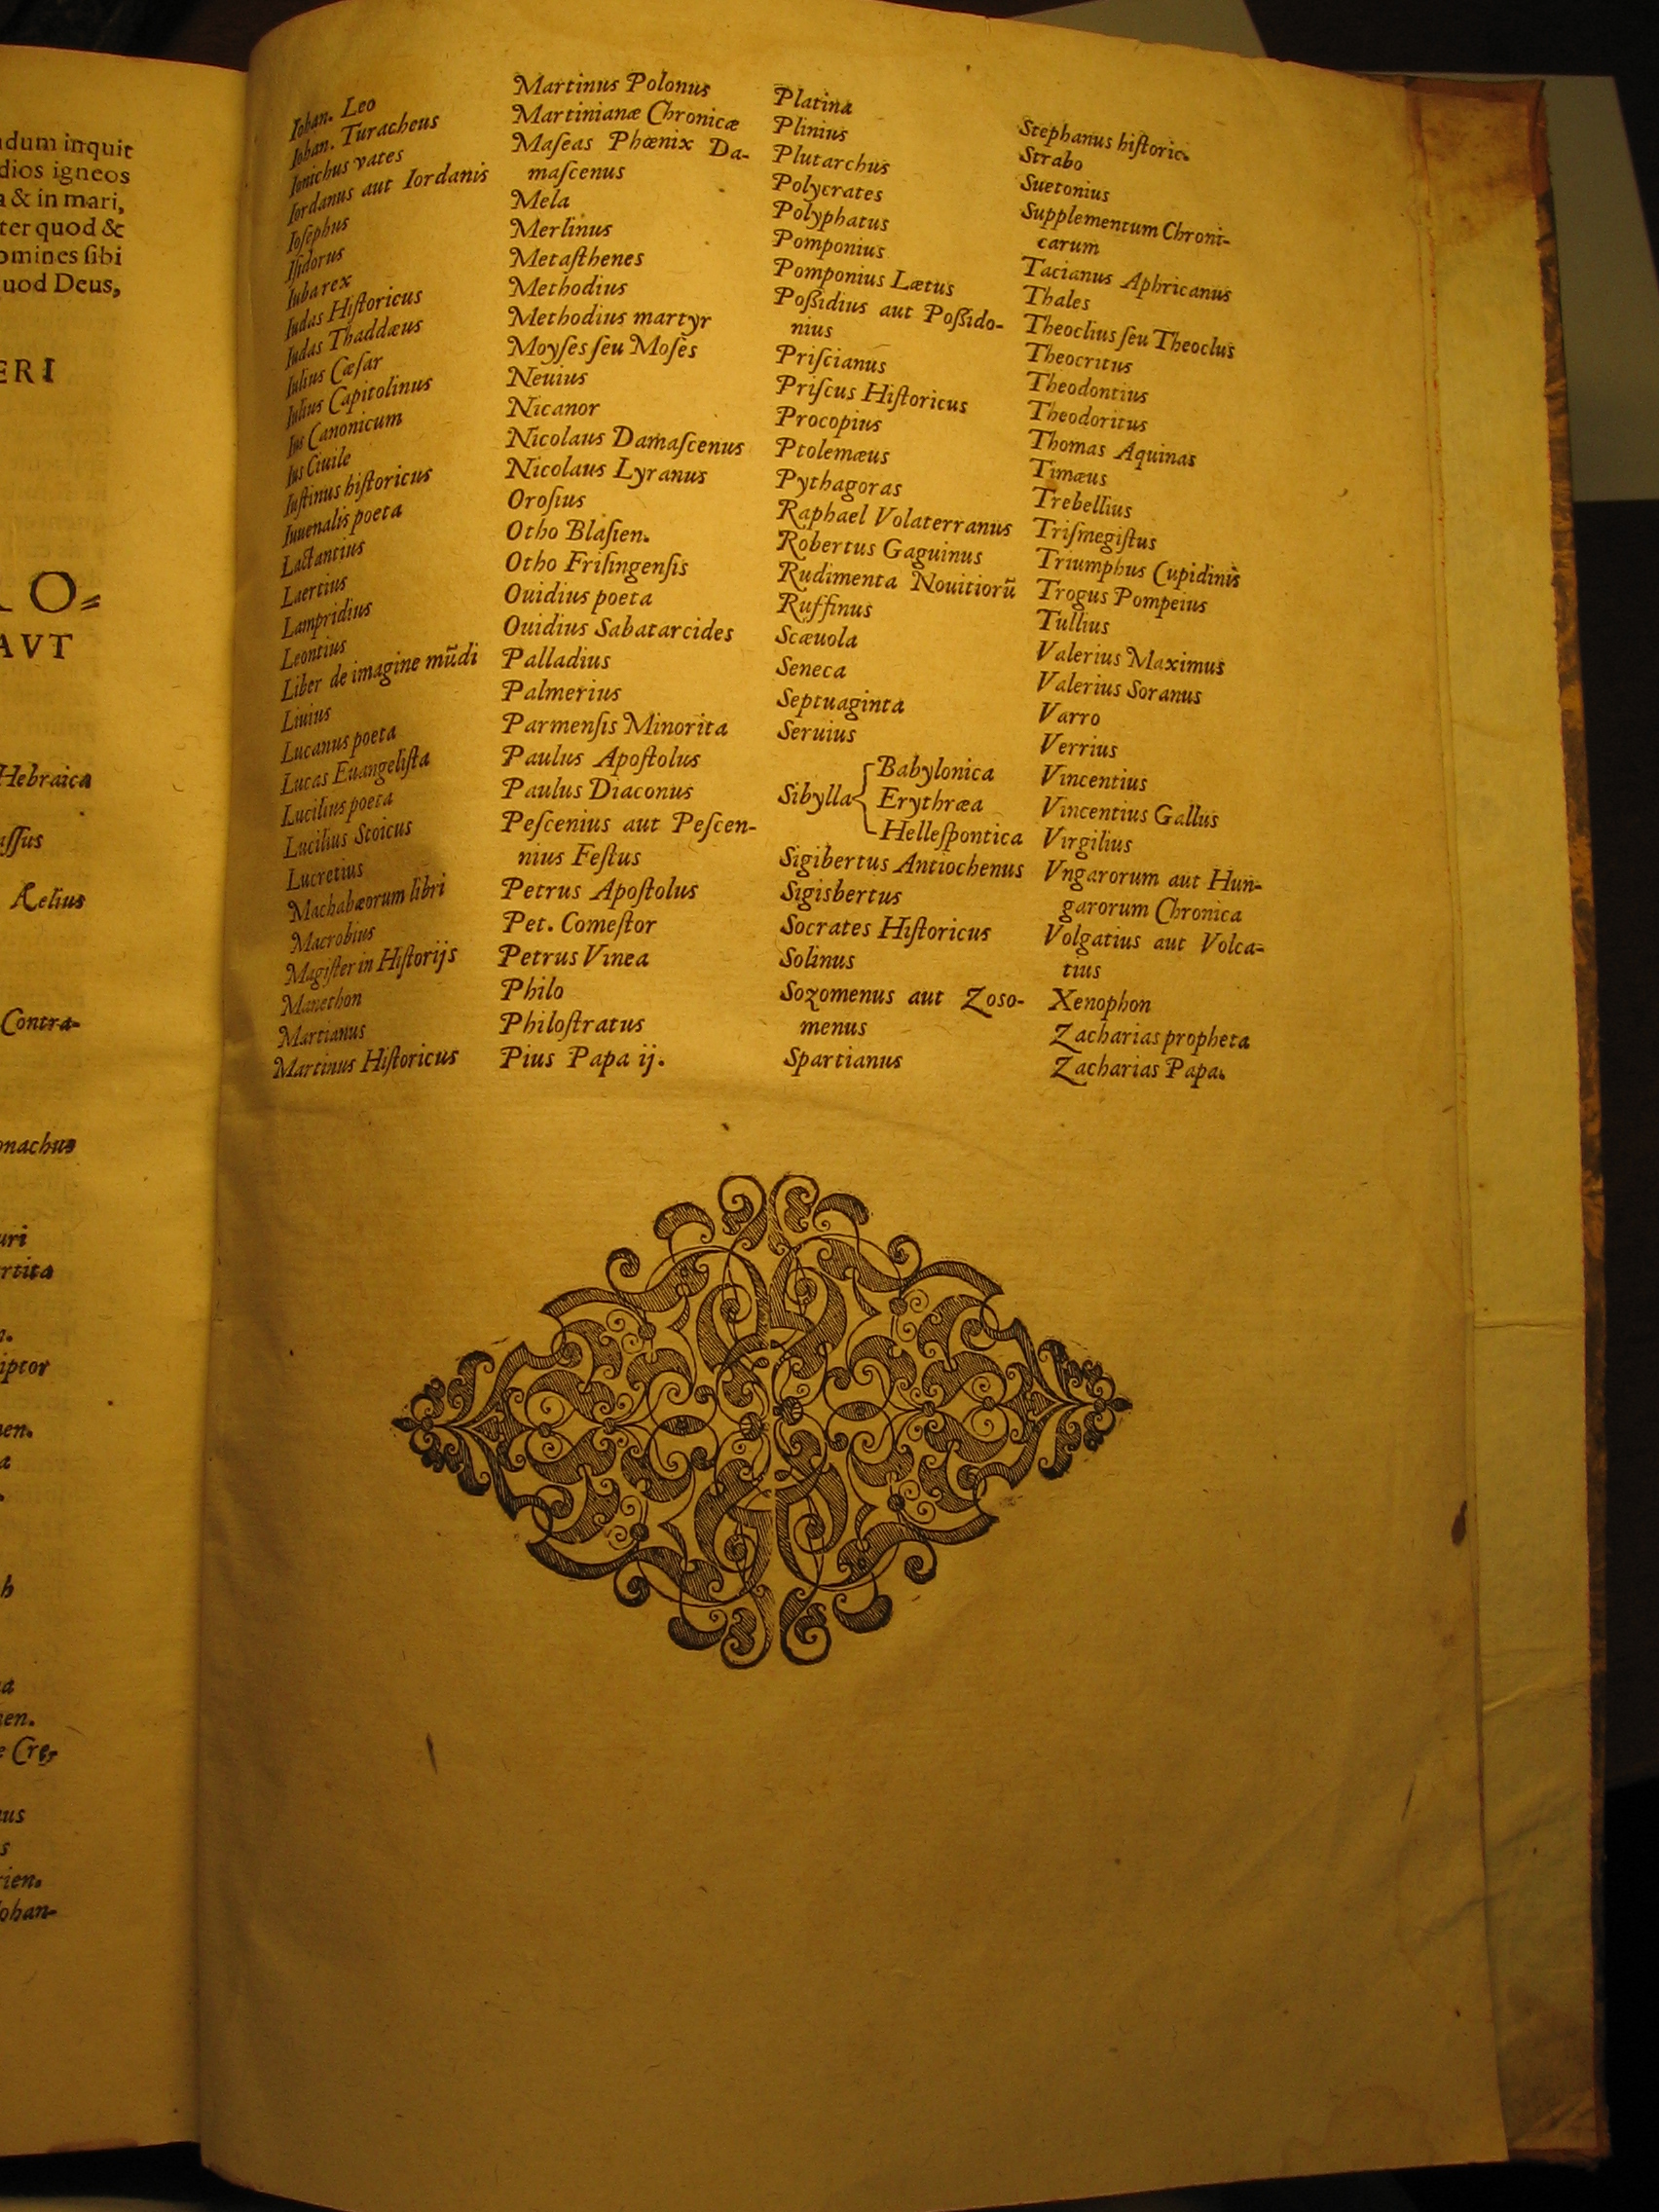 dum inquit
dios igneos
a & in mari,
ter quod &
omines ſibi
uod Deus,
ERI
RO⸗
AVT
Hebraica
aſſus
Aelius
Contra-
onachus
uri
rtita
iptor
en.
a
h
a
en.
e Creſ-
us
s
rien.
Iohan-
Iohan. Leo
Iohan. Turacheus
Ionichus vates
Iordanus aut Iordanis
Ioſephus
Iſidorus
Iuba rex
Iudas Hiſtoricus
Iudas Thaddæus
Iulius Cæſar
Iulius Capitolinus
Ius Canonicum
Ius Ciuile
Iuſtinus hiſtoricus
Iuuenalis poeta
Lactantius
Laertius
Lampridius
Leontius
Liber de imagine mũdi
Liuius
Lucanus poeta
Lucas Euangeliſta
Lucilius poeta
Lucilius Stoicus
Lucretius
Machabæorum libri
Macrobius
Magiſter in Hiſtorijs
Manethon
Martianus
Martinus Hiſtoricus
Martinus Polonus
Martinianæ Chronicæ
Maſeas Phœnix Da-
maſcenus
Mela
Merlinus
Metaſthenes
Methodius
Methodius martyr
Moyſes ſeu Moſes
Neuius
Nicanor
Nicolaus Damaſcenus
Nicolaus Lyranus
Oroſius
Otho Blaſien.
Otho Friſingenſis
Ouidius poeta
Ouidius Sabatarcides
Palladius
Palmerius
Parmenſis Minorita
Paulus Apoſtolus
Paulus Diaconus
Peſcenius aut Peſcen-
nius Feſtus
Petrus Apoſtolus
Pet. Comeſtor
Petrus Vinea
Philo
Philoſtratus
Pius Papa ij.
Platina
Plinius
Plutarchus
Polycrates
Polyphatus
Pomponius
Pomponius Lætus
Poßidius aut Poßido-
nius
Priſcianus
Priſcus Hiſtoricus
Procopius
Ptolemæus
Pythagoras
Raphael Volaterranus
Robertus Gaguinus
Rudimenta Nouitiorũ
Ruffinus
Scæuola
Seneca
Septuaginta
Seruius
Babylonica
Sibylla Erythræa
Helleſpontica
Sigibertus Antiochenus
Sigisbertus
Socrates Hiſtoricus
Solinus
Sozomenus aut Zoso-
menus
Spartianus
Stephanus hiſtoric.
Strabo
Suetonius
Supplementum Chroni-
carum
Tacianus Aphricanus
Thales
Theoclius ſeu Theoclus
Theocritus
Theodontius
Theodoritus
Thomas Aquinas
Timæus
Trebellius
Triſmegiſtus
Triumphus Cupidinis
Trogus Pompeius
Tullius
Valerius Maximus
Valerius Soranus
Varro
Verrius
Vincentius
Vincentius Gallus
Virgilius
Vngarorum aut Hun-
garorum Chronica
Volgatius aut Volca-
tius
Xenophon
Zacharias propheta
Zacharias Papa.